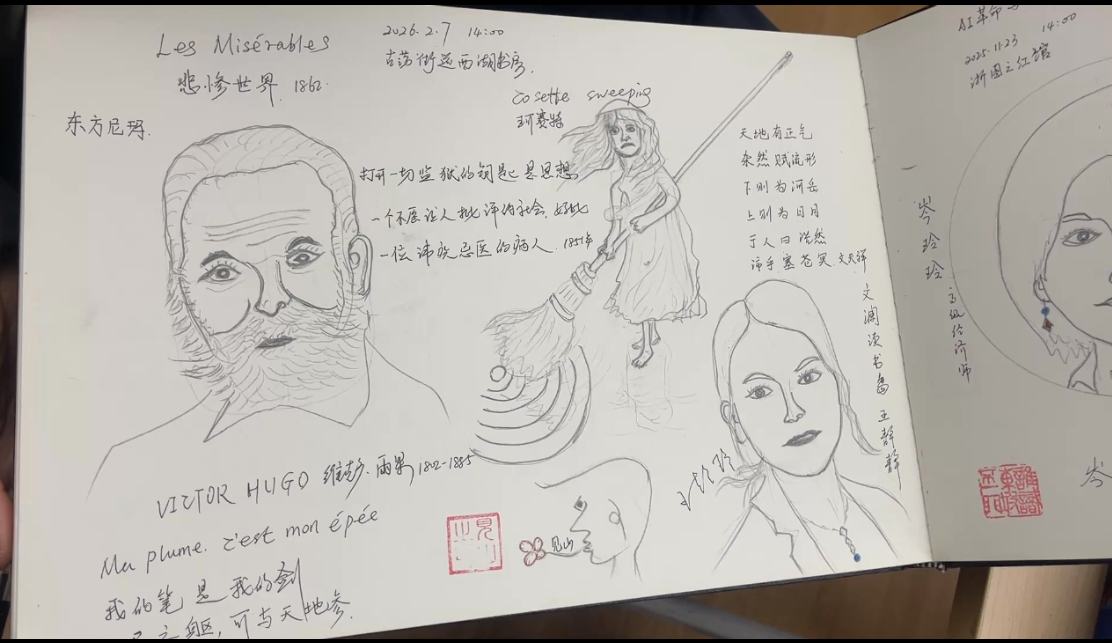 Les Misérables
悲惨世界. 1862.
2026.2.7 14:00
古荡街道西湖书房.
东方尼玛.
cosette sweeping
珂赛特
打开一切监狱的钥匙是思想
一个不愿让人批评的社会, 好比
一位讳疾忌医的病人. 1851年
天地有正气
杂然赋流形
下则为河岳
上则为日月
于人曰浩然
沛乎塞苍冥. 文天祥
文澜读书岛 王静静
VICTOR HUGO 维克多·雨果 1802-1885
Ma plume. c'est mon épée
我的笔是我的剑
之躯, 可与天地参.
见山
见山
AI革命与
2025.11.23 14:00
浙图之江馆
岑玲玲
高级经济师
岑